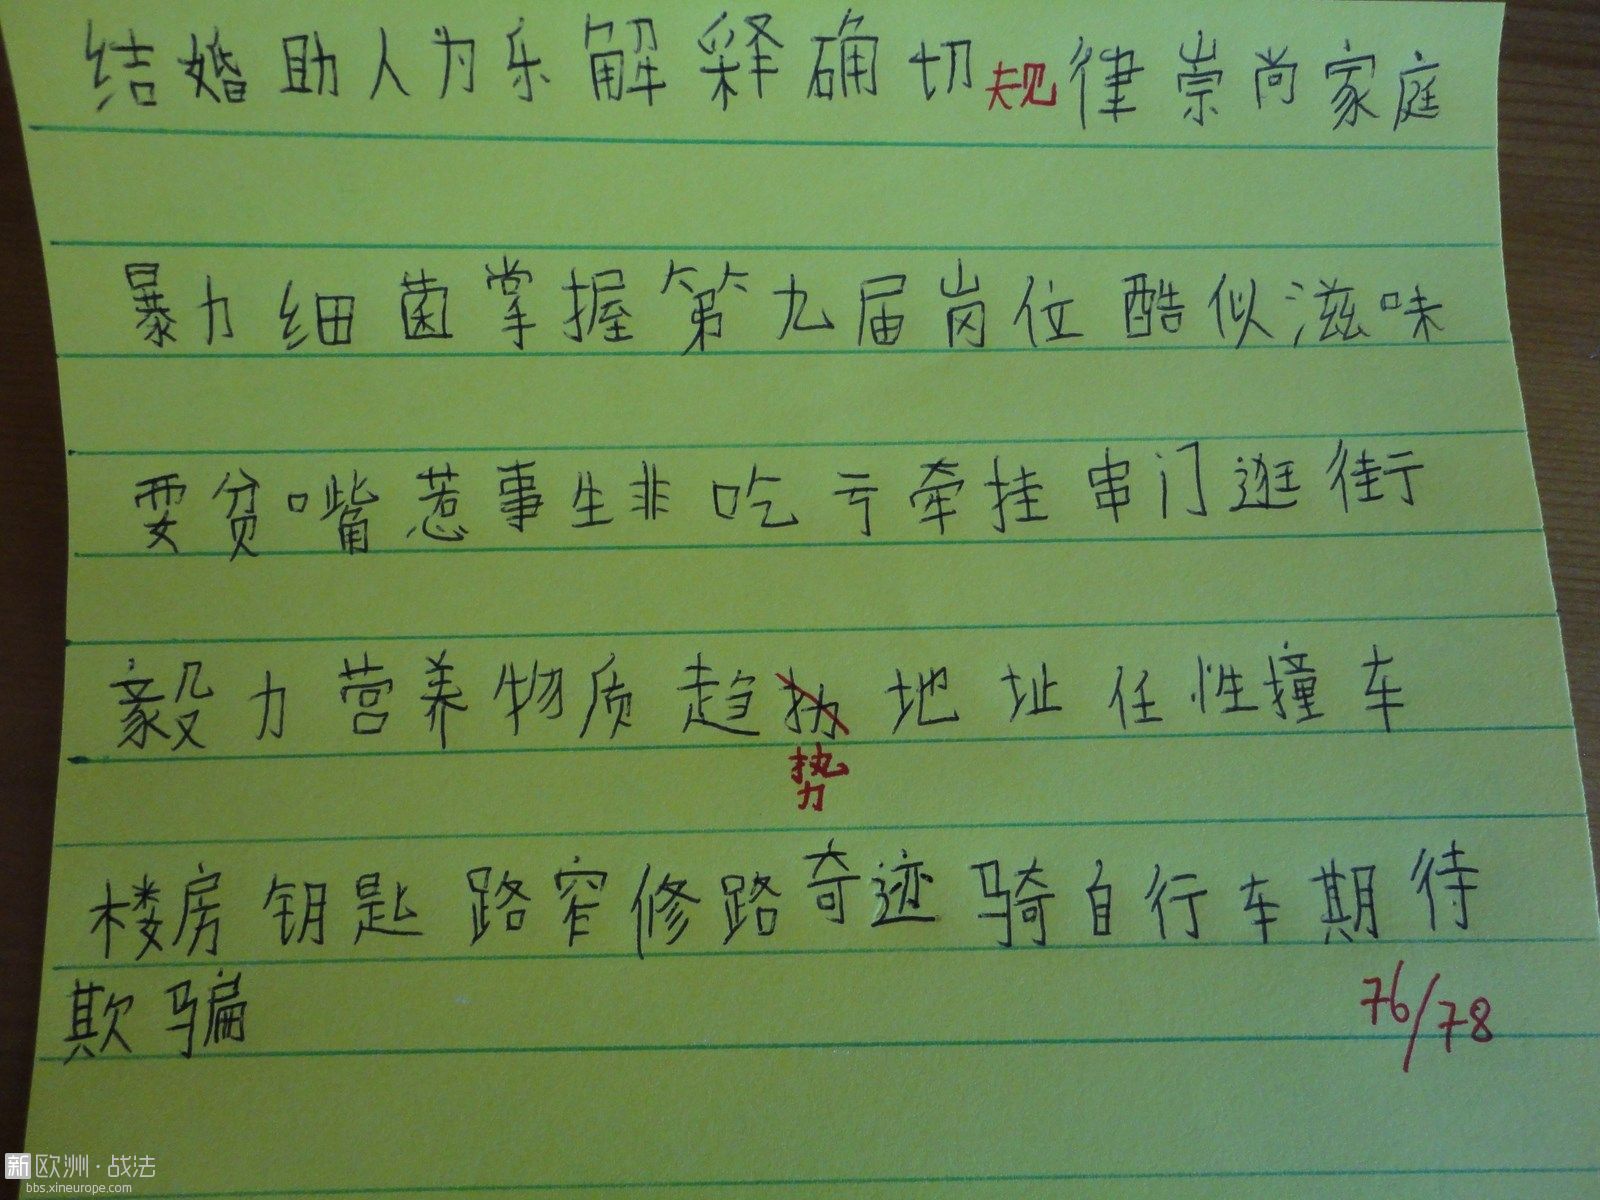 结婚 助人为乐 解释 确切 规律 崇尚 家庭
暴力 细菌 掌握 第九届 岗位 酷似 滋味
耍贫嘴 惹事生非 吃亏 牵挂 串门 逛街
毅力 营养 物质 趋 地址 任性 撞车
势
楼房 钥匙 路窄 修路 奇迹 骑自行车 期待
欺骗
76/78
新欧洲·战法
bbs.xineurope.com